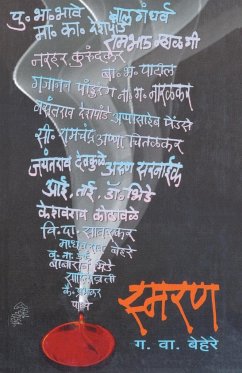 पु. भा. भावे बालगंधर्व
मा. का. देशपांडे
रामभाऊ म्हाळगी
नरहर कुरुंदकर
बा. भ. पाटील
गजानन पांडुरंग ना. ग. नारळकर
वसंतराव देशपांडे अप्पासाहेब पेंडसे
सी. रामचंद्र अण्णा चितळकर
जयंतराव देवकुळे अरुण सरनाईक
आई. ताई. डॉ. भिडे
केशवराव कोठावळे
वि. दा. सावरकर
माधवराव बेहेरे
बाबाराव भिडे
स्मरण
ग. वा. बेहेरे